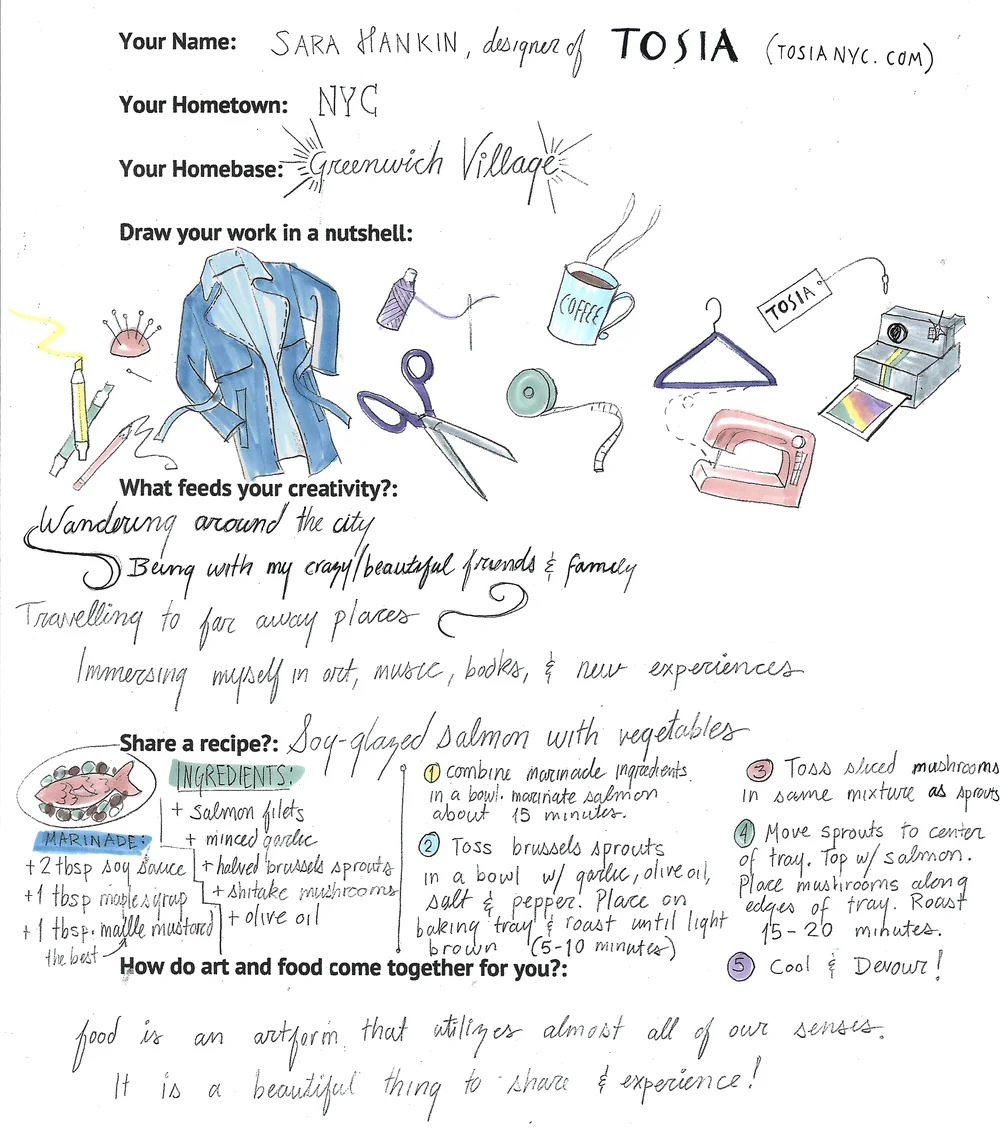 Your Name: SARA HANKIN, designer of TOSIA (TOSIANYC.COM)
Your Hometown: NYC
Your Homebase: Greenwich Village
Draw your work in a nutshell:
COFFEE
TOSIA
What feeds your creativity?:
Wandering around the city
Being with my crazy/beautiful friends & family
Travelling to far away places
Immersing myself in art, music, books, & new experiences
Share a recipe?: Soy-glazed salmon with vegetables
MARINADE:
+ 2 tbsp soy sauce
+ 1 tbsp maple syrup
+ 1 tbsp. maille mustard
the best
INGREDIENTS:
+ salmon filets
+ minced garlic
+ halved brussels sprouts
+ shitake mushrooms
+ olive oil
1 combine marinade ingredients
in a bowl. marinate salmon
about 15 minutes.
2 Toss brussels sprouts
in a bowl w/ garlic, olive oil,
salt & pepper. Place on
baking tray & roast until light
brown (5-10 minutes)
3 Toss sliced mushrooms
in same mixture as sprouts
4 Move sprouts to center
of tray. Top w/ salmon.
Place mushrooms along
edges of tray. Roast
15-20 minutes.
5 Cool & Devour!
How do art and food come together for you?:
food is an artform that utilizes almost all of our senses.
It is a beautiful thing to share & experience!